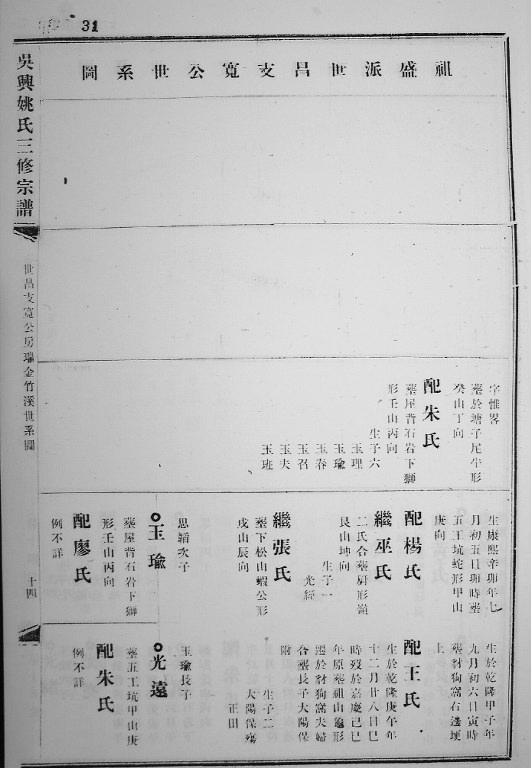 31
祖盛派世昌支寬公世系圖
吳興姚氏三修宗譜
世昌支寬公房瑞金竹溪世系圖
十四
字惟畧
葬於塘子尾牛形
癸山丁向
配朱氏
葬屋背石岩下獅
形壬山丙向
生子六
玉理
玉瑜
玉春
玉召
玉夫
玉班
生康熙辛卯年七
月初五日卯時葬
五工坑蛇形甲山
庚向
配楊氏
繼巫氏
二氏合葬厨形嶺
艮山坤向
生子一
光經
繼張氏
葬下松山蝦公形
戌山辰向
思縚次子
玉瑜
葬屋背石岩下獅
形壬山丙向
配廖氏
例不詳
生於乾隆甲子年
九月初六日寅時
葬豺狗窩右邊埂
上
配王氏
生於乾隆庚午年
十二月廿八日巳
時歿於嘉慶己巳
年原葬祖山龜形
遷於豺狗窩夫婦
合葬長子大陽保
附
生子二
大陽保殤
正田
玉瑜長子
光遠
葬五工坑甲山庚
配朱氏
例不詳